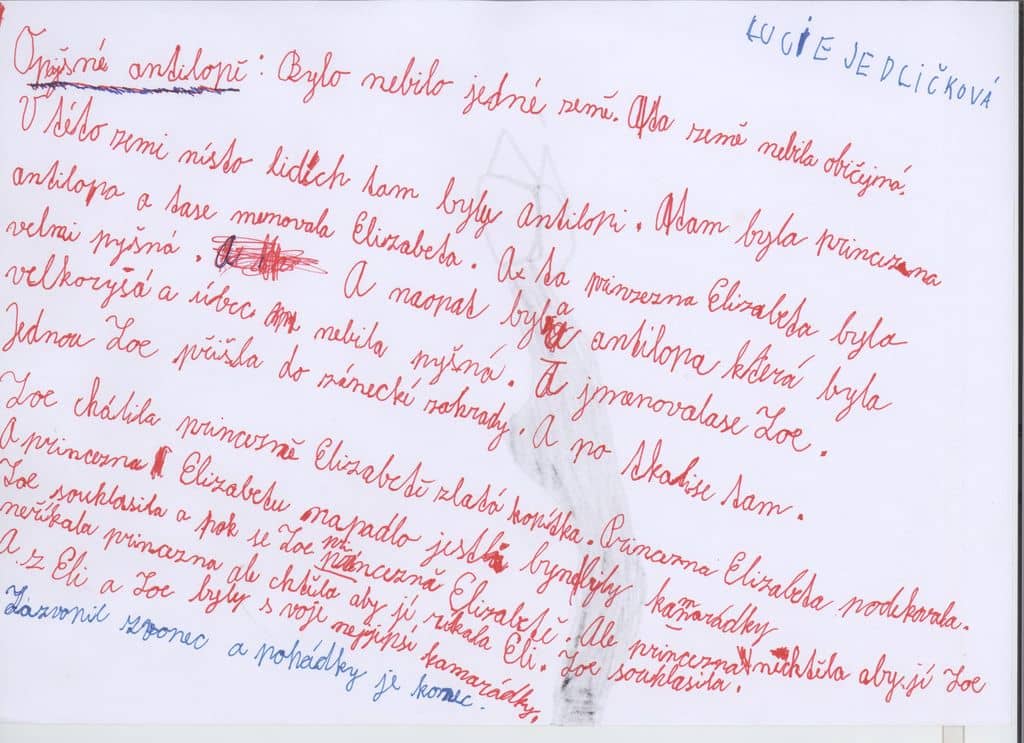 LUCIE JEDLIČKOVÁ
Opyšné antilopě: Bylo nebilo jedné země. Ata země nebila običejná.
V této zemi nísto lidích tam byly antilopi. Atam byla princezna
antilopa a tase menovala Elizabeta. Ax ta prinzezna Elizabeta byla
velmi pyšná. A naopat byla antilopa která byla
velkoryšá a úbec nebila pyšná. A jmenovalase Zoe.
Jednou Zoe přišla do zánecké zahrady. A po tkalise tam.
Zoe chátila princezně Elizabetě zlatá kopítka. Princezna Elizabeta podekovala.
A princezna Elizabetu napadlo jestli bynebyly kamarádky
Zoe souhlasila a pak se Zoe princezně Elizabetě. Ale princezna nichtila aby jí Zoe
neříkala princezna ale chtěla aby jí říkala Eli. Zoe souhlasila.
A sz Eli a Zoe byly s voje nejlepší kamarádky.
Zazvonil zvonec a pohádky je konec.